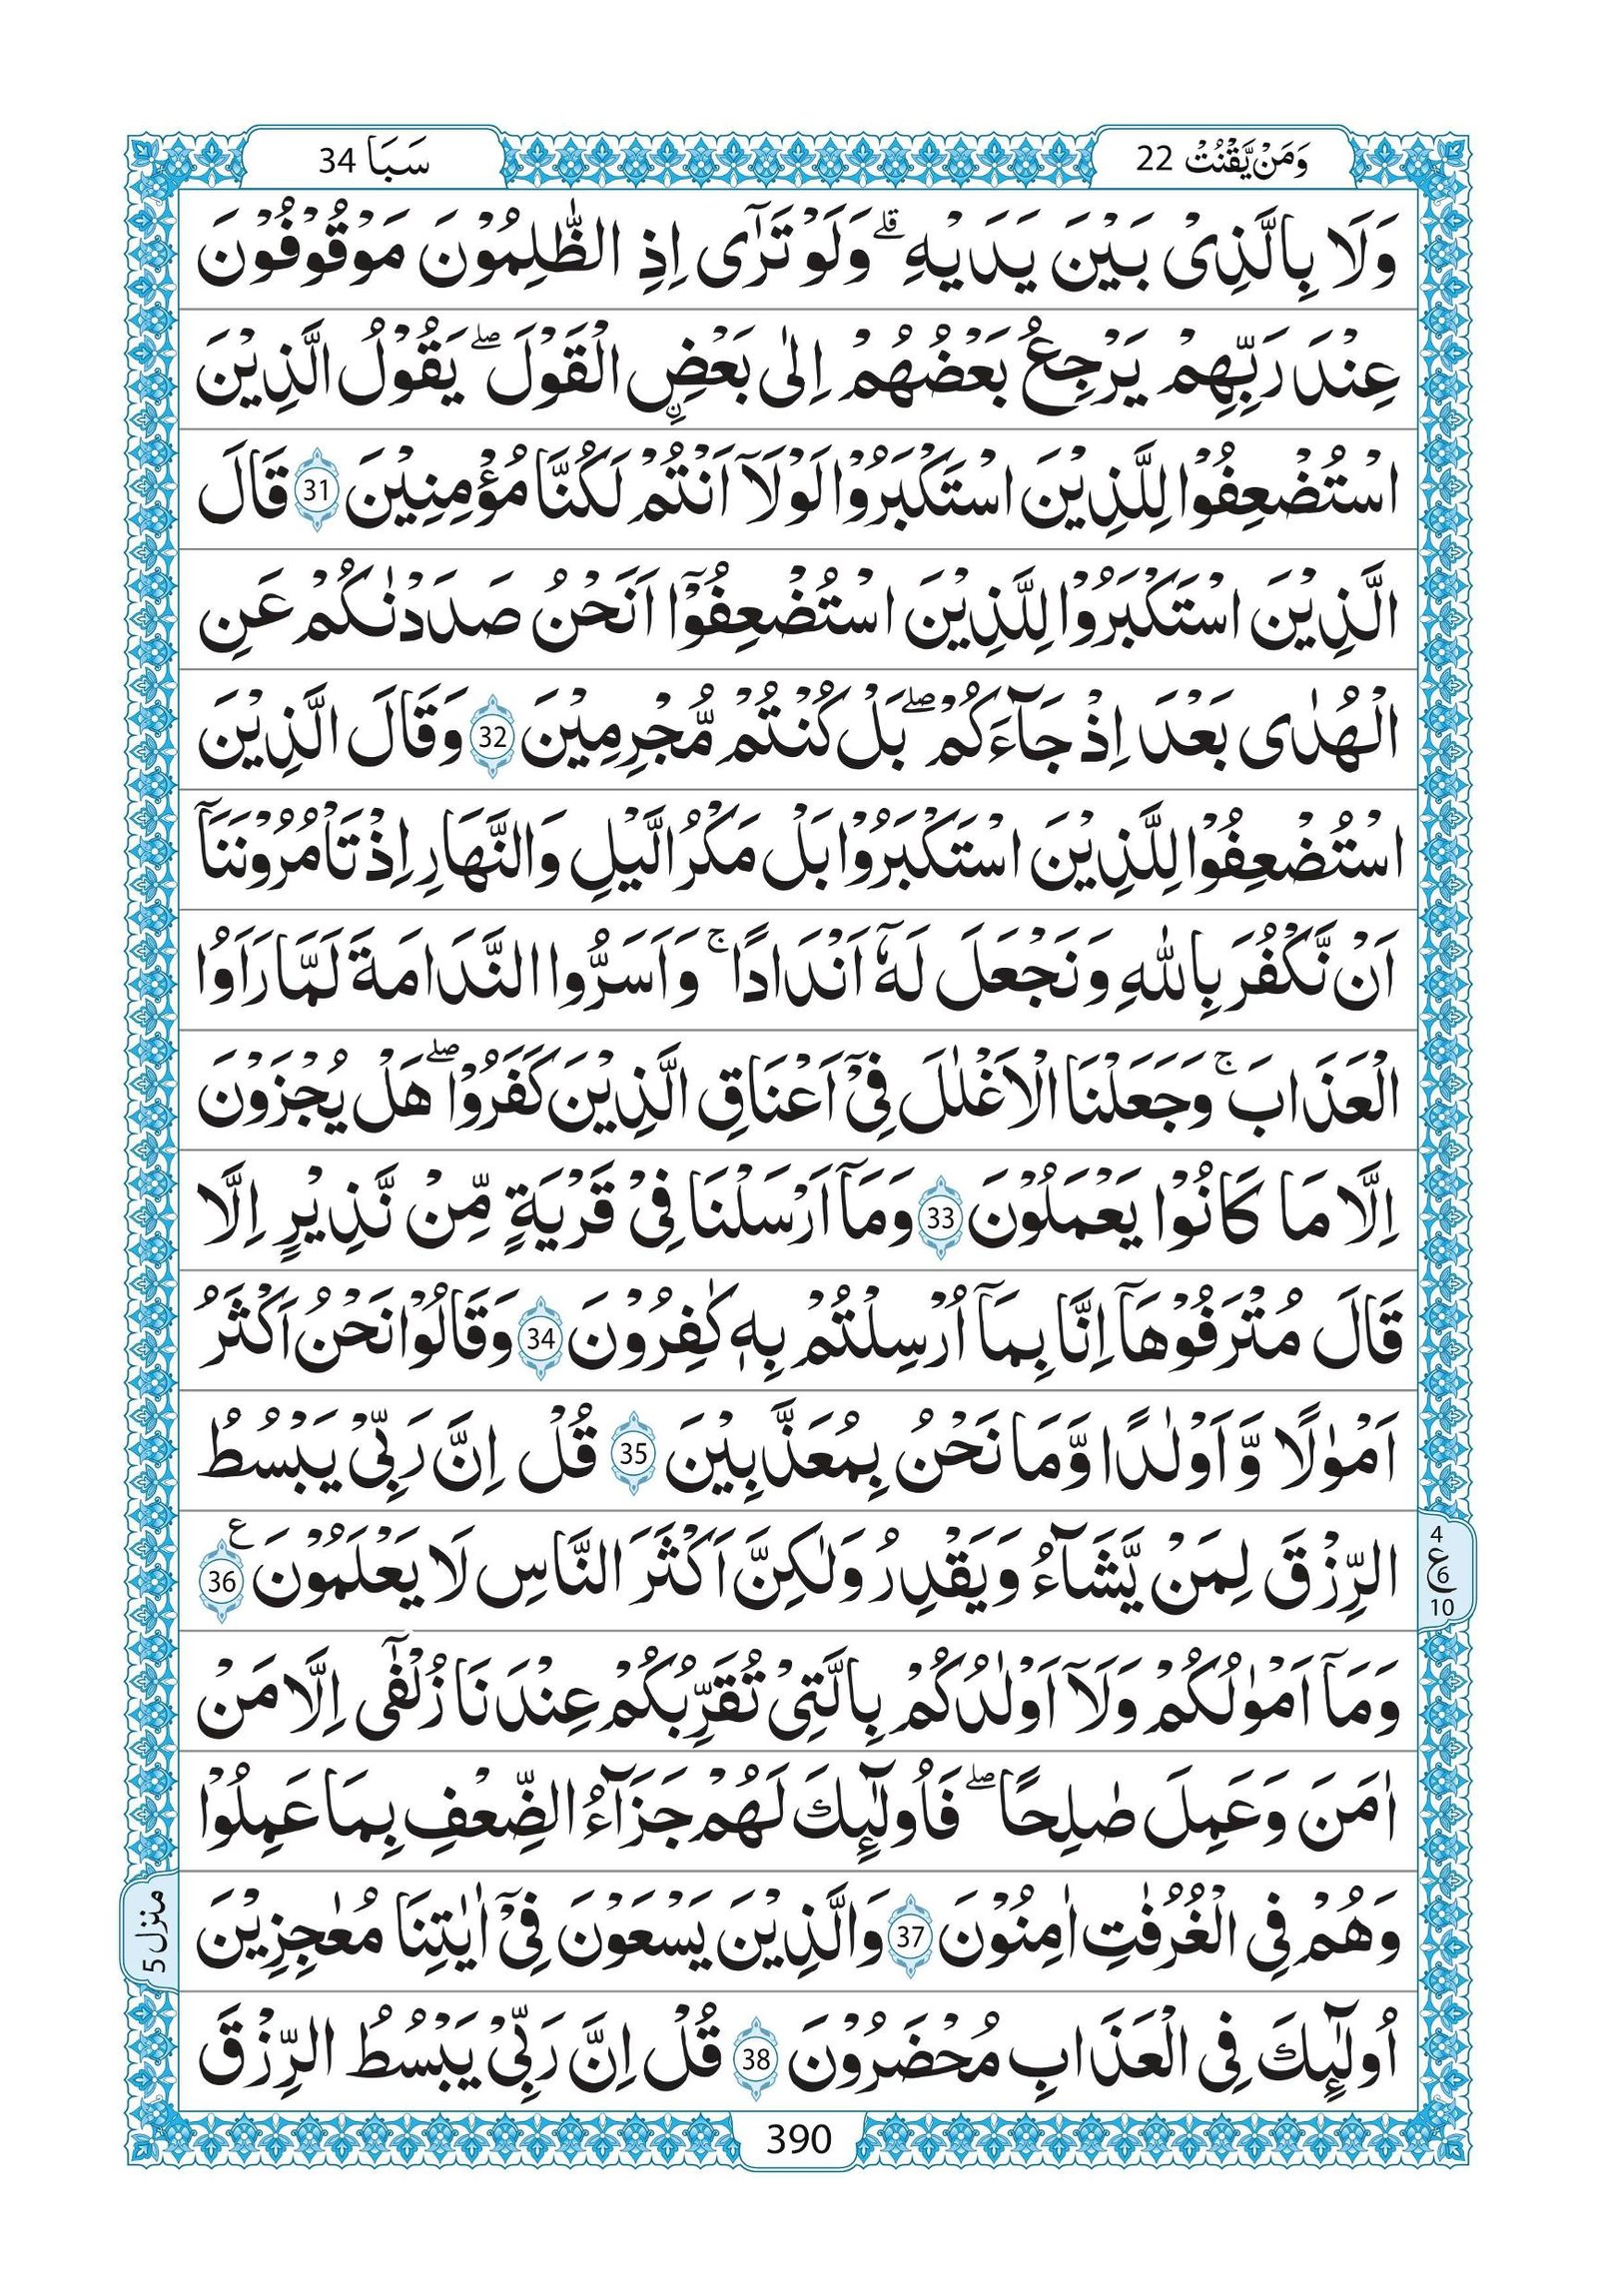 وَمَنْ يَّقْنُتْ 22
سَبَاَ 34
وَلَا بِالَّذِىْ بَيْنَ يَدَيْهِ ۗ وَلَوْ تَرٰٓى اِذِ الظّٰلِمُوْنَ مَوْقُوْفُوْنَ
عِنْدَ رَبِّهِمْ يَرْجِعُ بَعْضُهُمْ اِلٰى بَعْضِ ۨالْقَوْلَ ۖ يَقُوْلُ الَّذِيْنَ
اسْتُضْعِفُوْا لِلَّذِيْنَ اسْتَكْبَرُوْا لَوْلَآ اَنْتُمْ لَكُنَّا مُؤْمِنِيْنَ 31 قَالَ
الَّذِيْنَ اسْتَكْبَرُوْا لِلَّذِيْنَ اسْتُضْعِفُوْٓا اَنَحْنُ صَدَدْنٰكُمْ عَنِ
الْهُدٰى بَعْدَ اِذْ جَآءَكُمْ ۖ بَلْ كُنْتُمْ مُّجْرِمِيْنَ 32 وَقَالَ الَّذِيْنَ
اسْتُضْعِفُوْا لِلَّذِيْنَ اسْتَكْبَرُوْا بَلْ مَكْرُ الَّيْلِ وَالنَّهَارِ اِذْ تَاْمُرُوْنَنَآ
اَنْ نَّكْفُرَ بِاللّٰهِ وَنَجْعَلَ لَهٗٓ اَنْدَادًا ۚ وَاَسَرُّوا النَّدَامَةَ لَمَّا رَاَوُا
الْعَذَابَ ۚ وَجَعَلْنَا الْاَغْلٰلَ فِىْٓ اَعْنَاقِ الَّذِيْنَ كَفَرُوْا ۖ هَلْ يُجْزَوْنَ
اِلَّا مَا كَانُوْا يَعْمَلُوْنَ 33 وَمَآ اَرْسَلْنَا فِىْ قَرْيَةٍ مِّنْ نَّذِيْرٍ اِلَّا
قَالَ مُتْرَفُوْهَآ اِنَّا بِمَآ اُرْسِلْتُمْ بِهٖ كٰفِرُوْنَ 34 وَقَالُوْا نَحْنُ اَكْثَرُ
اَمْوٰلًا وَّاَوْلٰدًا وَّمَا نَحْنُ بِمُعَذَّبِيْنَ 35 قُلْ اِنَّ رَبِّىْ يَبْسُطُ
الرِّزْقَ لِمَنْ يَّشَآءُ وَيَقْدِرُ وَلٰكِنَّ اَكْثَرَ النَّاسِ لَا يَعْلَمُوْنَ ع 36
4 ع 6 10
وَمَآ اَمْوٰلُكُمْ وَلَآ اَوْلٰدُكُمْ بِالَّتِىْ تُقَرِّبُكُمْ عِنْدَنَا زُلْفٰٓى اِلَّا مَنْ
اٰمَنَ وَعَمِلَ صٰلِحًا ۖ فَاُولٰٓئِكَ لَهُمْ جَزَآءُ الضِّعْفِ بِمَا عَمِلُوْا
وَهُمْ فِى الْغُرُفٰتِ اٰمِنُوْنَ 37 وَالَّذِيْنَ يَسْعَوْنَ فِىْٓ اٰيٰتِنَا مُعٰجِزِيْنَ
منزل 5
اُولٰٓئِكَ فِى الْعَذَابِ مُحْضَرُوْنَ 38 قُلْ اِنَّ رَبِّىْ يَبْسُطُ الرِّزْقَ
390